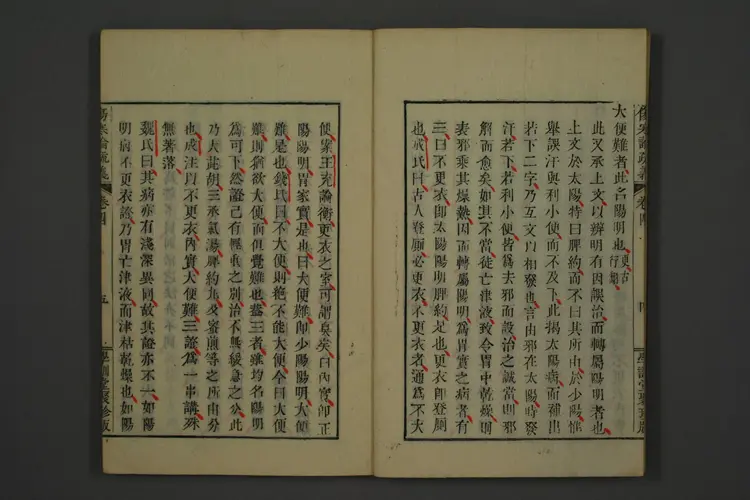 大便難者此名陽明也
此又承上文以辨明有因誤治而轉屬陽明者也
上文於太陽特曰脾約而不曰其所由於少陽惟
舉誤汗與利小便而不及下此揭太陽病而錯出
若下二字乃互文以相發也言由邪在太陽時發
汗若下若利小便皆爲去邪而設治之誠當則邪
解而愈矣如其不當徒亡津液致令胃中乾燥則
表邪乘其燥熱因而轉屬陽明爲胃實之病者有
三曰不更衣即太陽陽明脾約是也更衣即登廁
也成氏曰古人登廁必更衣不更衣者通爲不大
便案王充論衡更衣之室可謂臭矣曰內實即正
陽陽明胃家實是也曰大便難即少陽陽明大便
難是也錢氏曰不大便則絕不能大便今曰大便
難則猶欲大便而但覺難也蓋三者雖均名陽明
爲可下然證已有輕重之別治不無緩急之分此
乃大黃胡三承氣湯脾約丸及蜜煎等之所由分
也成注以不更衣內實大便難三證爲一串講殊
無著落
魏氏曰其病亦有淺深異同故其證亦不一如陽
明病不更衣證乃胃亡津液而津枯乾燥也如陽
傷寒論疏義
卷四
五
學訓堂聚珍版